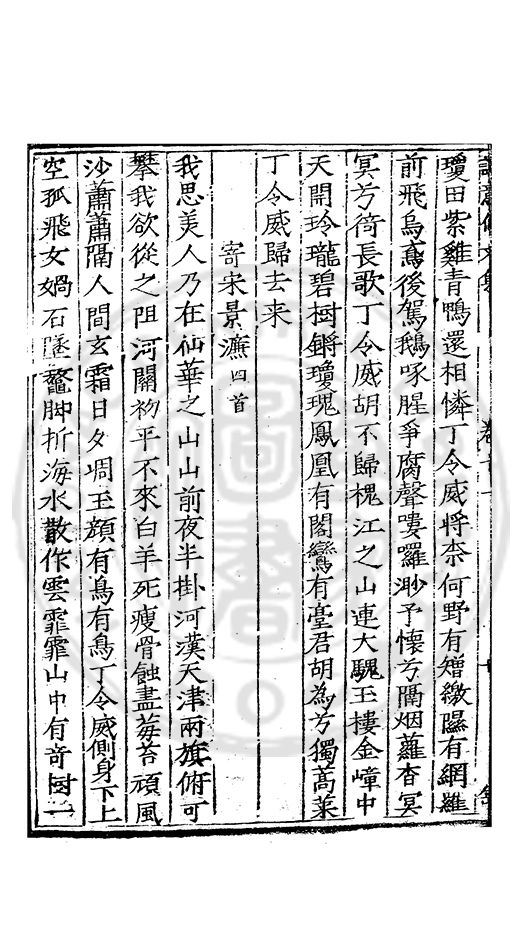 瓊田紫雞青鴨還相憐丁令威將柰何野有矰繳隰有網羅
前飛烏鳶後駕鵝啄腥爭腐聲嘍囉渺予懷兮隔烟蘿杳冥
冥兮倚長歌丁令威胡不歸槐江之山連大騩玉樓金嶂中
天開玲瓏碧樹鏘瓊瑰鳳凰有閣鸞有臺君胡為兮獨高萊
丁令威歸去来
寄宋景濂四首
我思美人乃在仙華之山山前夜半掛河漢天津兩旗俯可
攀我欲從之阻河關初平不來白羊死瘦骨蝕盡莓苔頑風
沙蕭蕭隔人間玄霜日夕凋玉顔有鳥有鳥丁令威側身下上
空孤飛女媧石墜鼇脚折海水散作雲霏霏山中有奇樹一